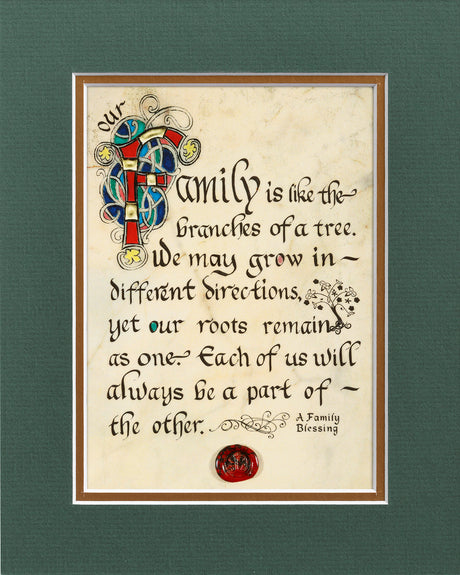 our
Family is like the
branches of a tree.
We may grow in —
different directions,
yet our roots remain
as one. Each of us will
always be a part of —
the other.
A Family
Blessing